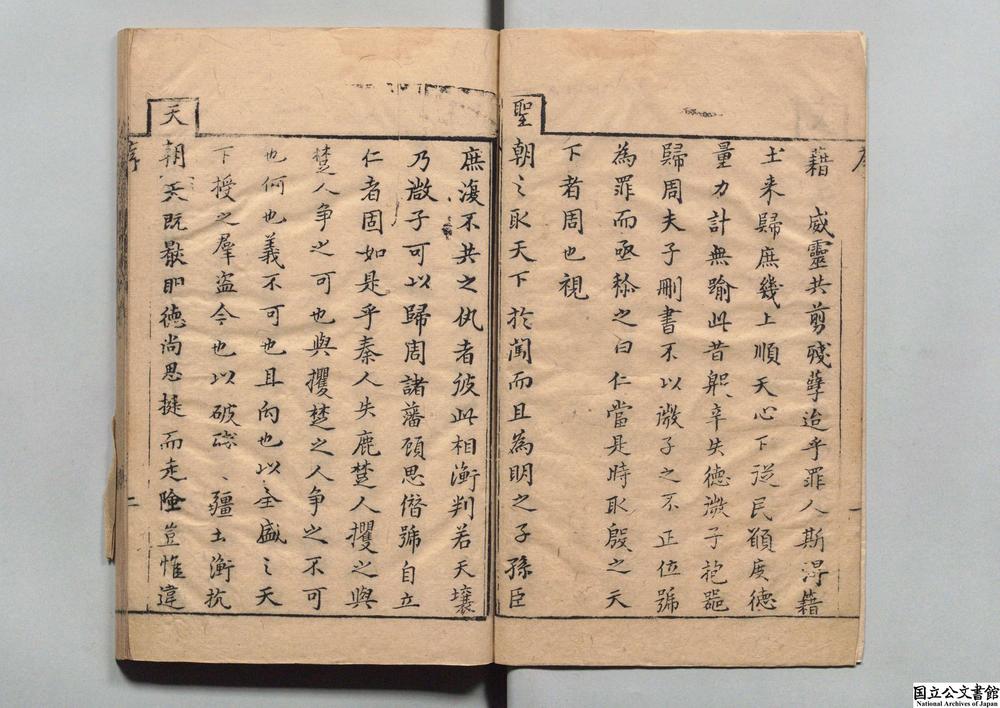 藉　威靈共剪殘孽迨乎罪人斯得籍
土来歸庶幾上順天心下從民願度德
量力計無踰此昔辛失德微子抱噐
歸周夫子刪書不以微子之不正位號
為罪而亟稱之曰仁當是時取殷之天
下者周也視
聖朝之取天下於闖而且為明之子孫臣
庶復不共之仇者彼此相衡判若天壤
乃啟子可以歸周諸藩顧思僭號自立
仁者固如是乎秦人失鹿楚人攫之與
楚人争之可也與攫楚之人争之不可
也何也義不可也且向也以全盛之天
下授之羣盜今也以破碎疆土衡抗
天朝天既厭明德尚思挺而走險豈惟違
序
二
国立公文書館
National Archives of Japan